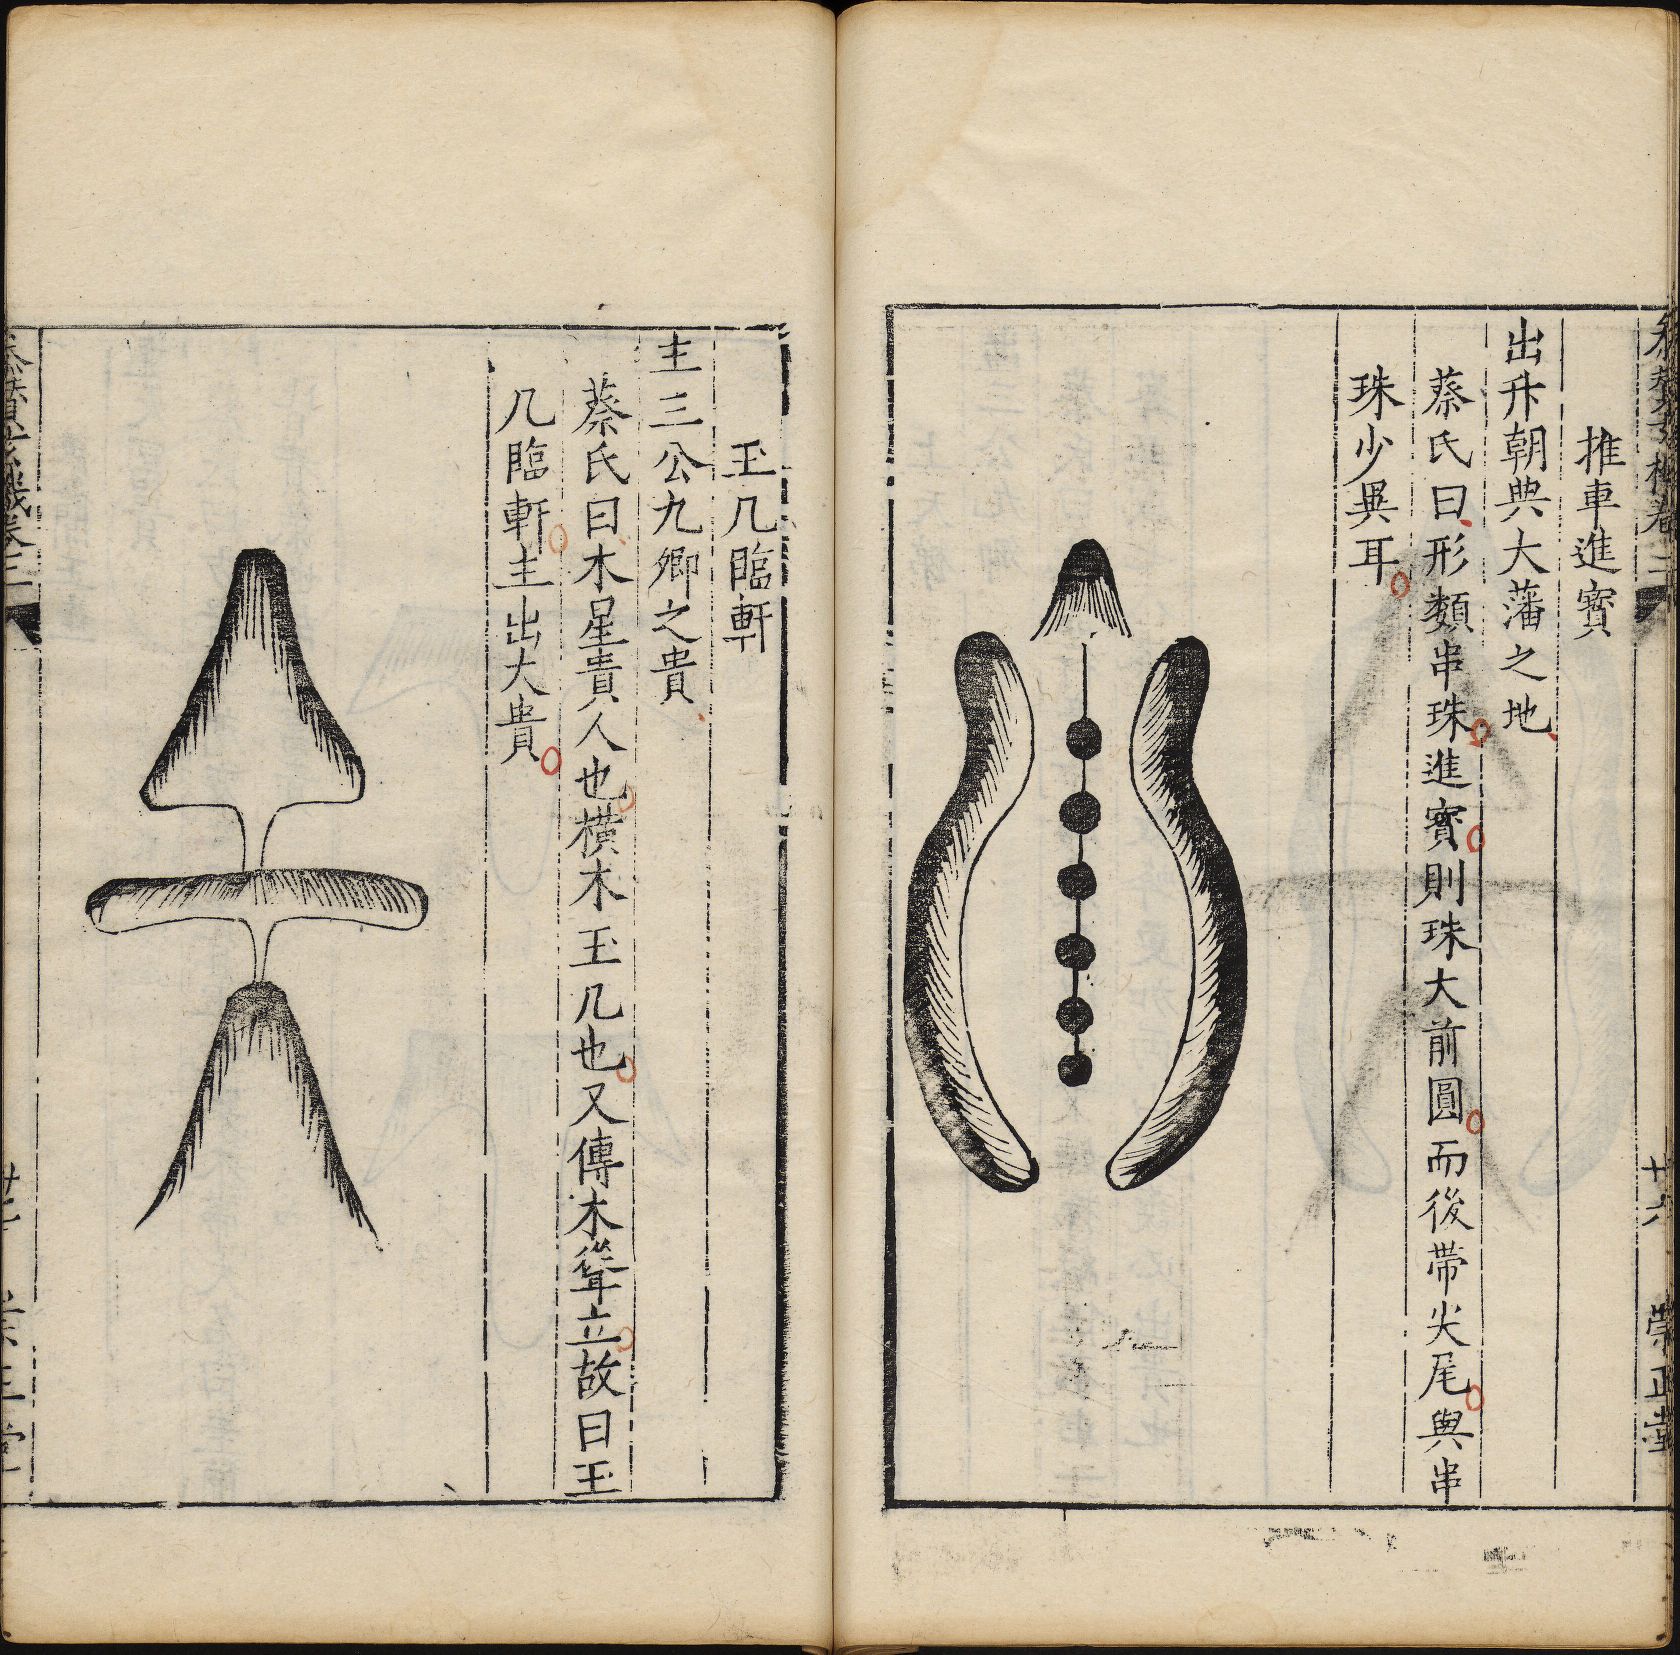 推車進寳
出升朝典大藩之地
蔡氏曰形類串珠進寳則珠大前圓而後帶尖尾與串
珠少異耳
廿六
榮正堂
玉几臨軒
主三公九卿之貴
蔡氏曰木星貴人也橫木玉几也又傳木聳立故曰玉
几臨軒主出大貴